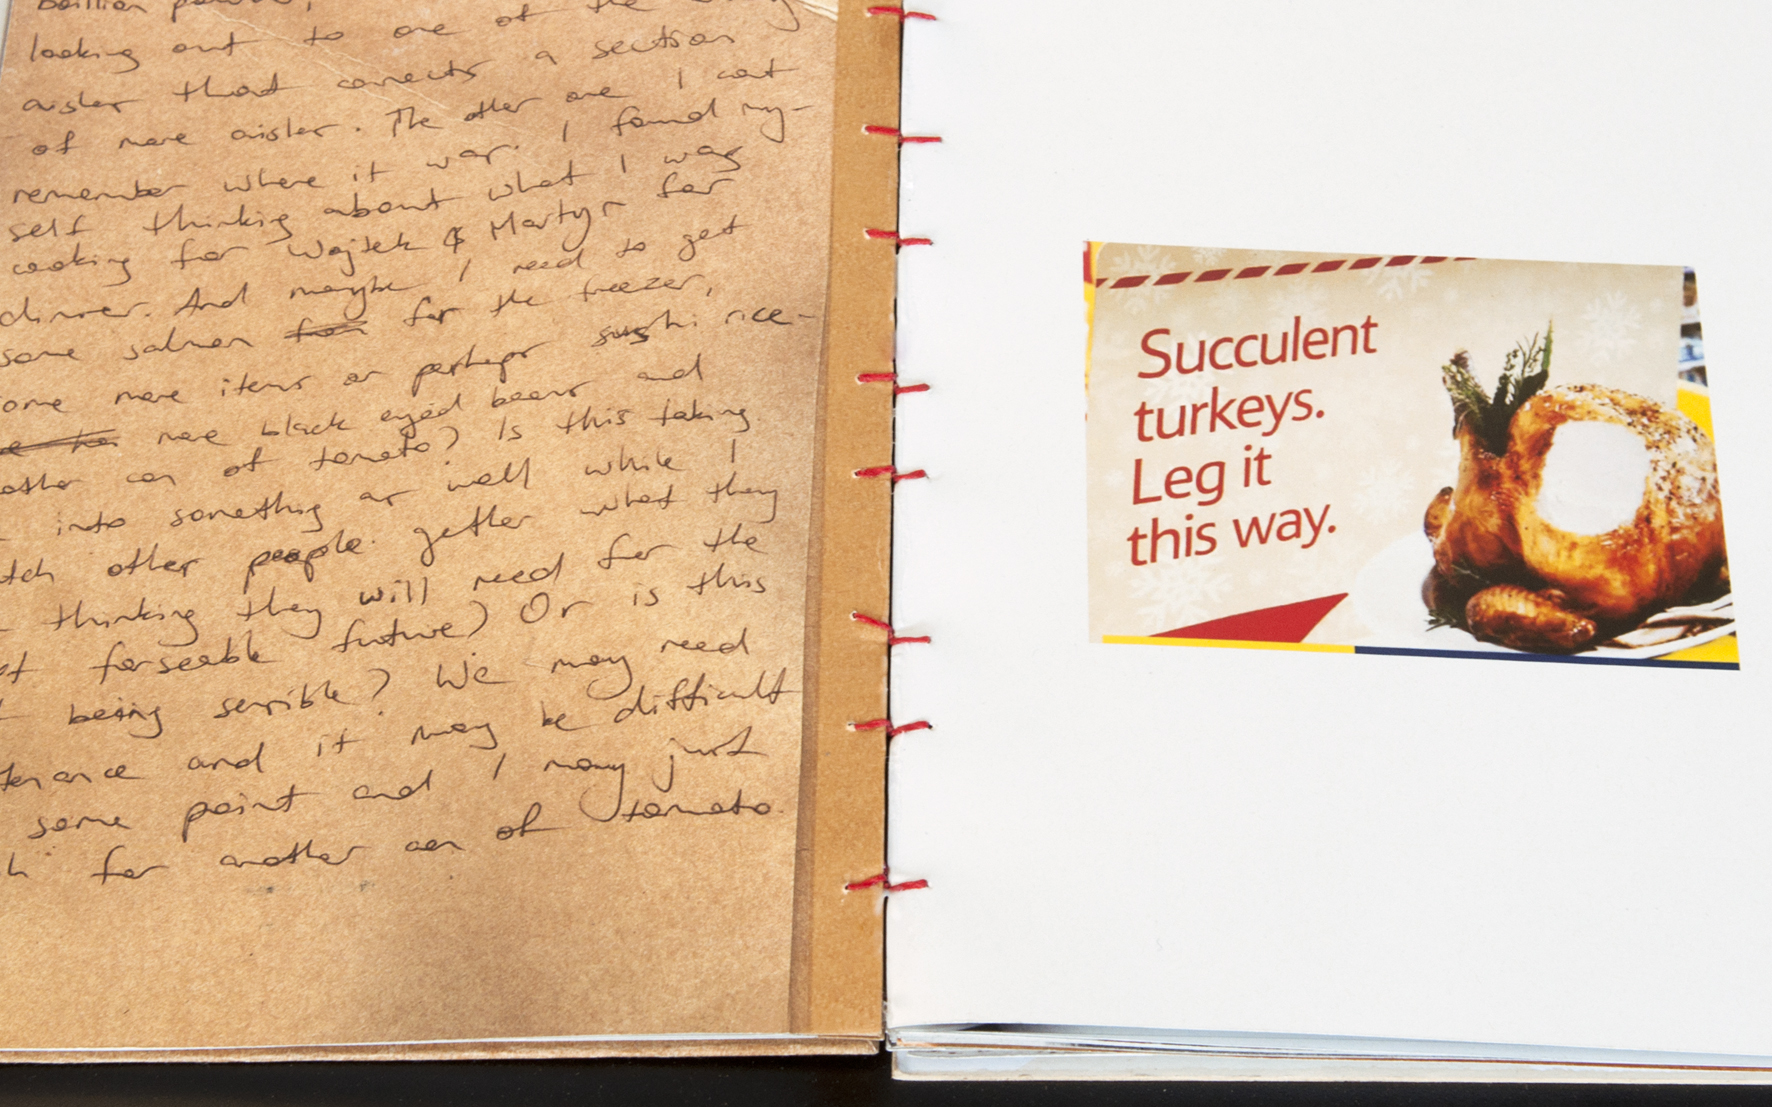 looking out to one of the
aisler that connects a section
of more aisler. The other one I cant
remember where it was. I found my-
self thinking about what I was
cooking for Wojtek & Martyr for
dinner. And maybe I need to get
some salmon for the freezer,
some more items or perhaps sushi rice-
more black eyed beans and
another can of tomato? Is this taking
into something as well while I
watch other people gather what they
thinking they will need for the
forseeable future? Or is this
being sensible? We may need
and it may be difficult
some point and I may just
for another can of tomato.
Succulent
turkeys.
Leg it
this way.